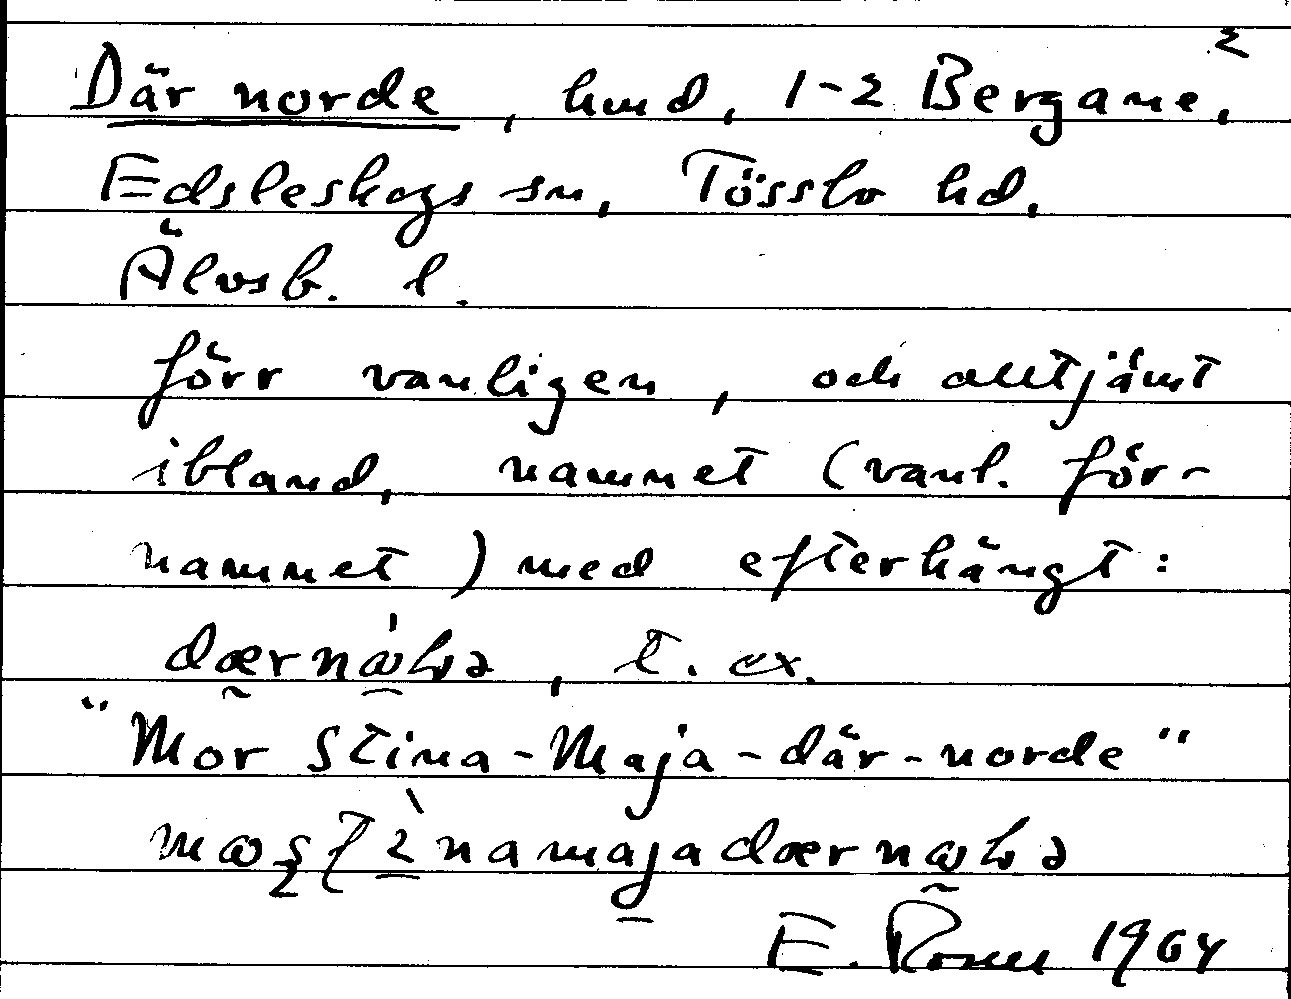 Där norde, hmd, 1-2 Bergane,²
Edsleskogs sn, Tössbo hd.
Älvsb. l.
förr vanligen, och alltjämt
ibland, namnet (vanl. för-
namnet) med efterhängt:
t. ex.
"Mor Stina-Maja-där-norde"
1964